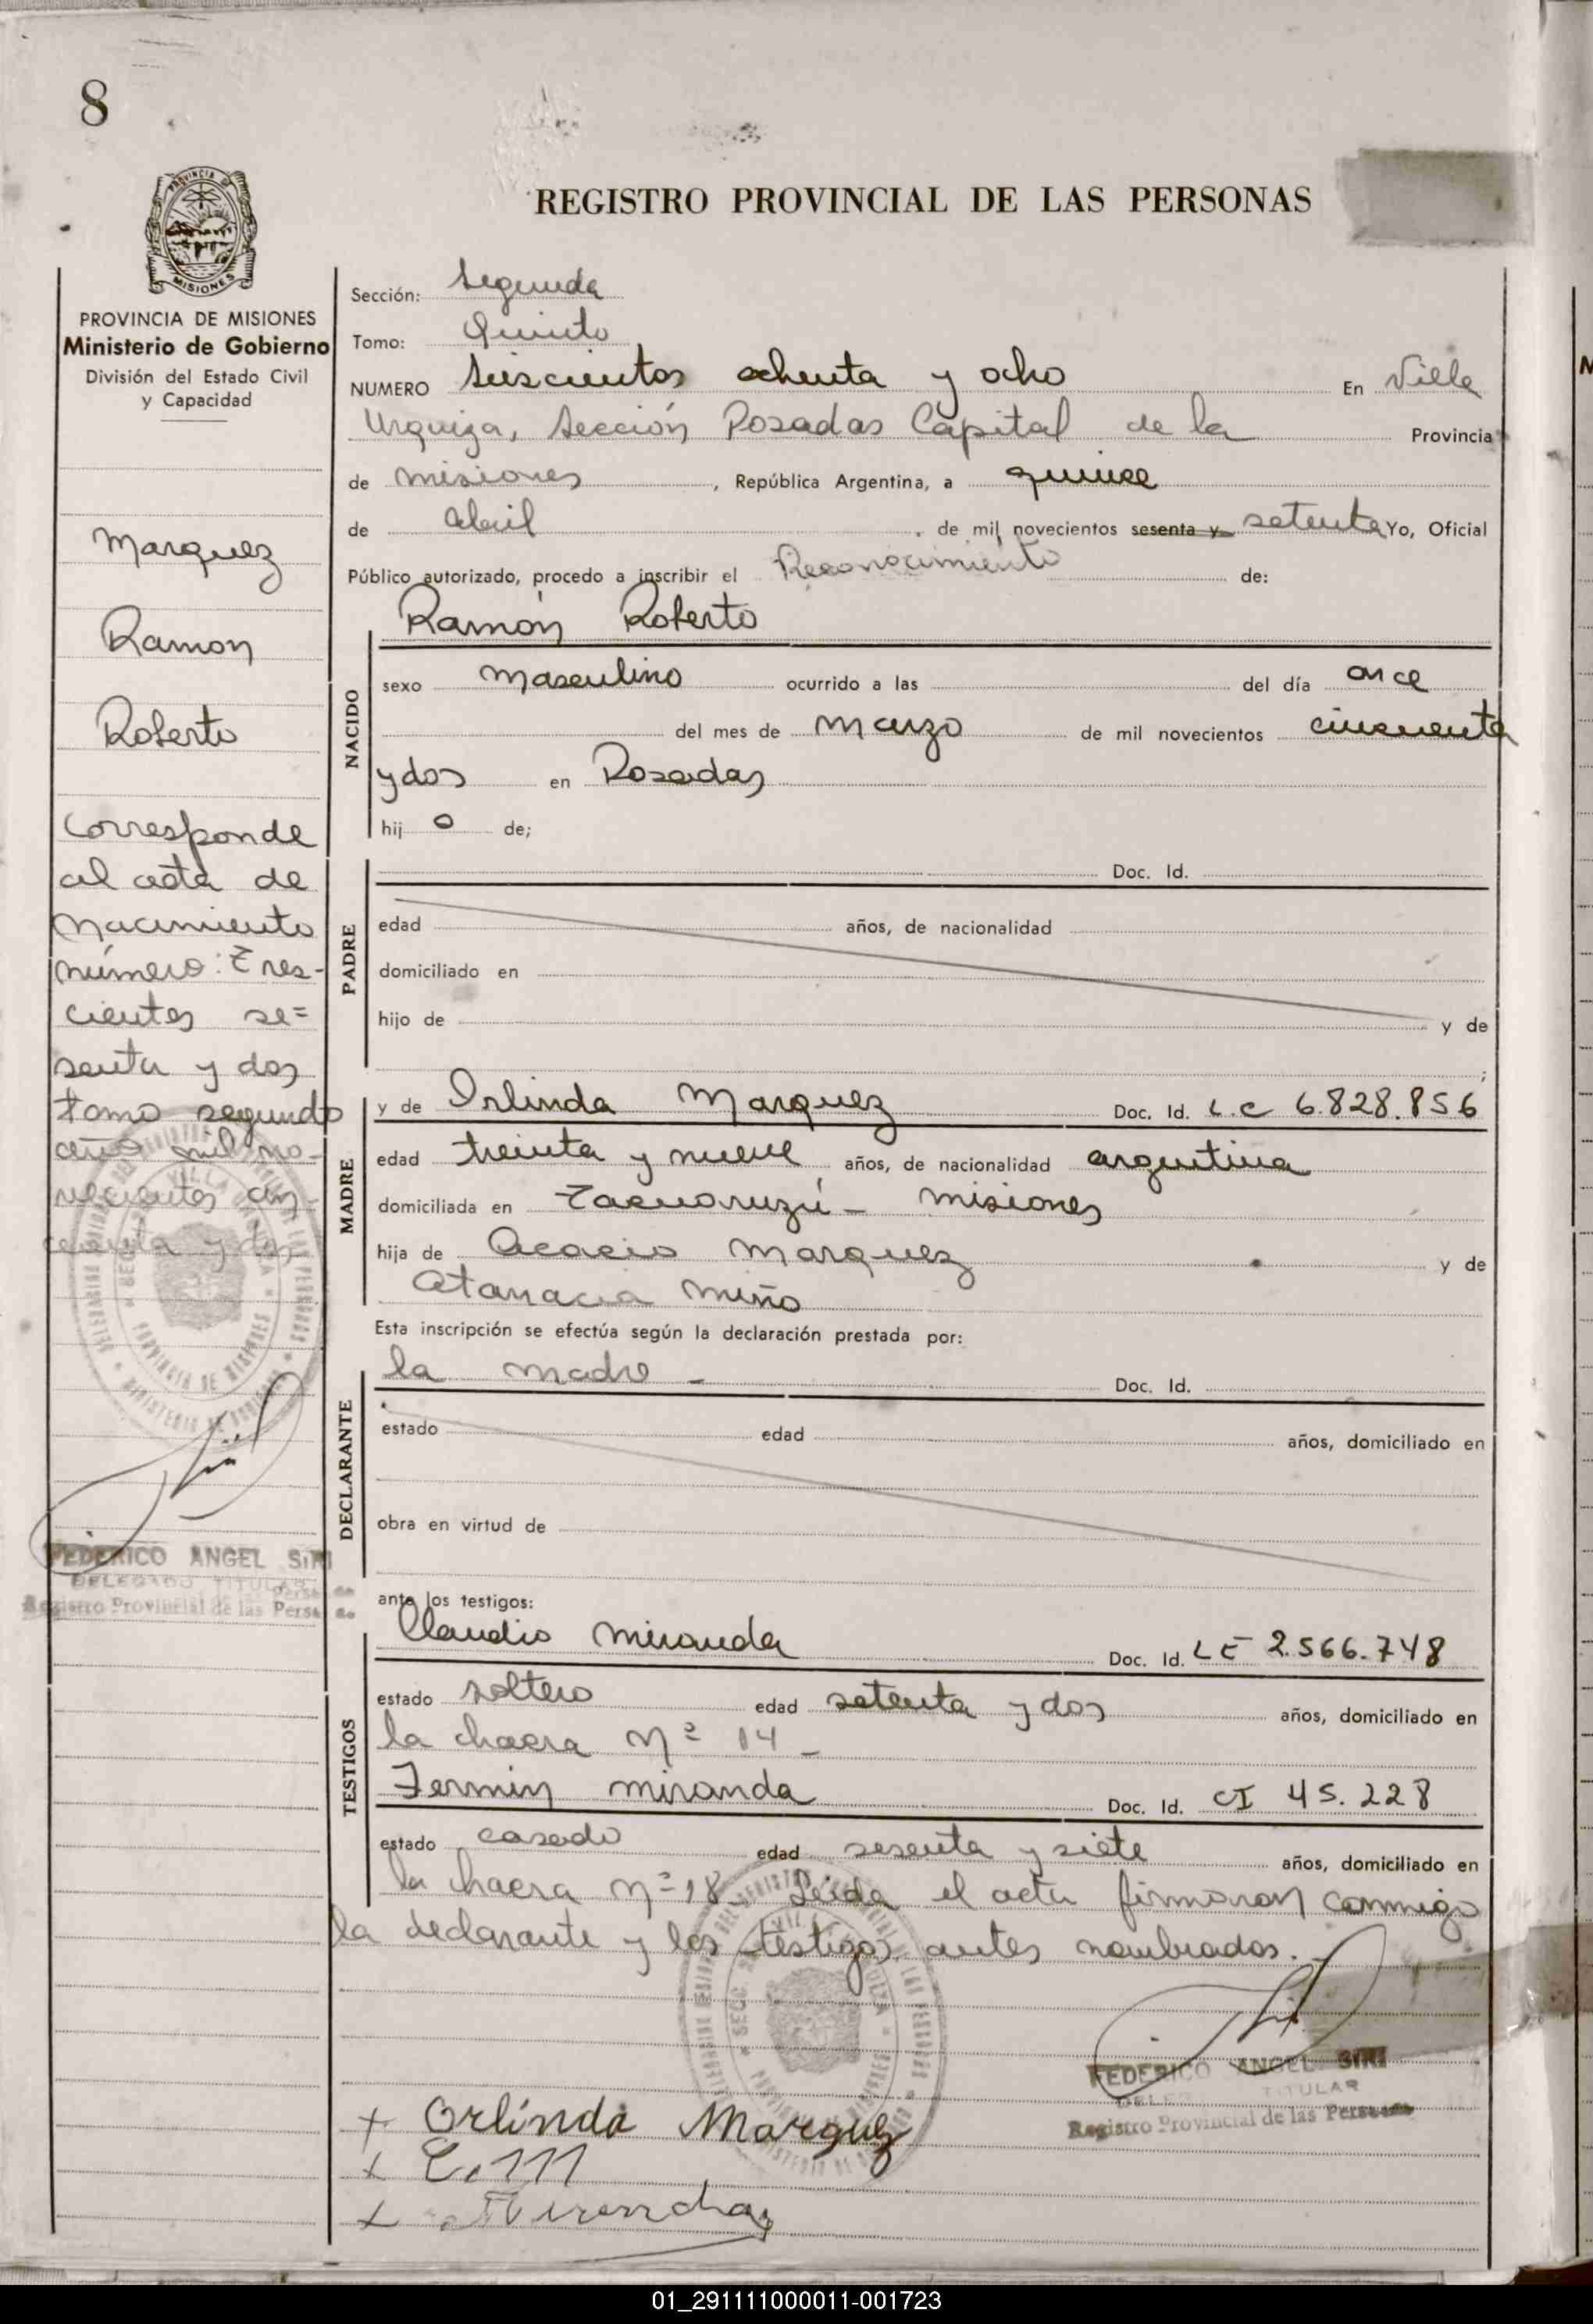 8
PROVINCIA DE
MISIONES
REGISTRO PROVINCIAL DE LAS PERSONAS
PROVINCIA DE MISIONES
Ministerio de Gobierno
División del Estado Civil
y Capacidad
Marquez
Ramon
Roberto
Corresponde
al acta de
nacimiento
número: Tres-
cientos se=
senta y dos
tomo segundo
año mil no-
vecientos cin-
cuenta y dos
FEDERICO ANGEL SIRI
DELEGADO TITULAR
Registro Provincial de las Perso
Sección: Segunda
Tomo: Quinto
NUMERO Seiscientos ochenta y ocho En Villa
Urquiza, Sección Posadas Capital de la Provincia
de Misiones, República Argentina, a quince
de abril de mil novecientos sesenta y setenta Yo, Oficial
Público autorizado, procedo a inscribir el Reconocimiento de:
Ramón Roberto
NACIDO
sexo masculino ocurrido a las del día once
del mes de marzo de mil novecientos cincuenta
y dos en Posadas
hij o de;
PADRE
Doc. Id.
edad años, de nacionalidad
domiciliado en
hijo de y de
;
MADRE
y de Orlinda Marquez Doc. Id. L.C 6.828.856
edad treinta y nueve años, de nacionalidad argentina
domiciliada en Tacuaruzú - Misiones
hija de Acacio Marquez y de
Atanacia Miño
Esta inscripción se efectúa según la declaración prestada por:
DECLARANTE
la madre - Doc. Id.
estado edad años, domiciliado en
obra en virtud de
ante los testigos:
TESTIGOS
Claudio Miranda Doc. Id. LE 2.566.748
estado soltero edad setenta y dos años, domiciliado en
la chacra Nº 14 -
Fermin Miranda Doc. Id. CI 45.228
estado casado edad sesenta y siete años, domiciliado en
la chacra Nº 18. Leida el acta firmaron conmigo
la declarante y los testigos antes nombrados.
FEDERICO ANGEL SIRI
TITULAR
Registro Provincial de las Personas
+ Orlinda Marquez
+
+ Miranda
01_291111000011-001723